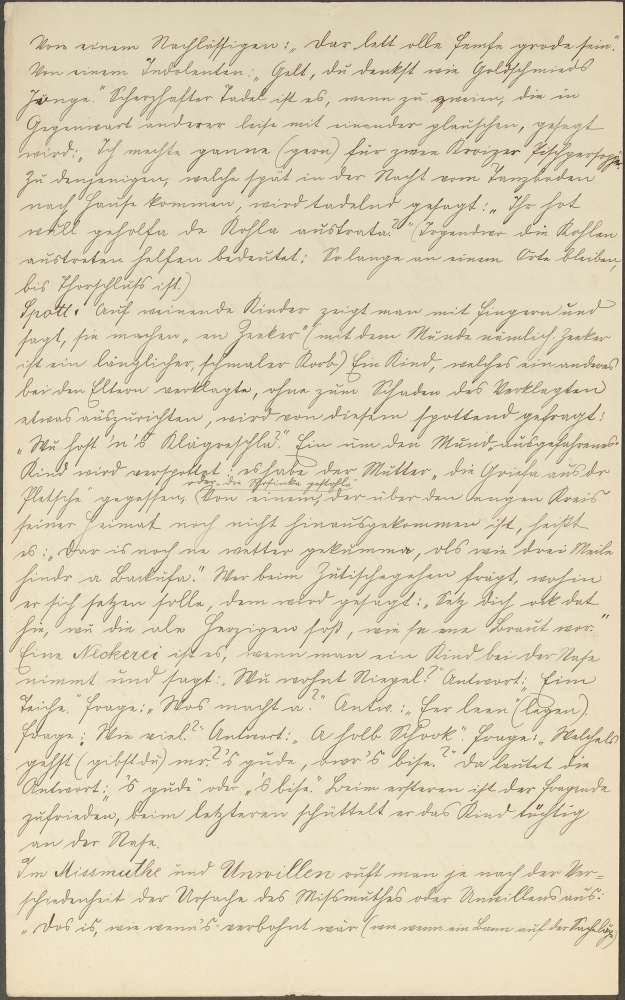 Von einem Nachlässigen: „Dar lett olle femfe grode sein."
Von einem Indolenten: „Gelt, du denkst wie Goldschmieds
Jonge." Scherzhafter Tadel ist es, wenn zu zweien, die in
Gegenwart anderer leise mit einander plauschen, gesagt
wird: „Ich mechte ganne (gern) für zwee Kraizer
Zu denjenigen, welche spät in der Nacht vom Tanzboden
nach Hause kommen, wird tadelnd gesagt: „Ihr hot
wull geholfa de Kohla austrata?" (Irgendwo die Kohlen
austreten helfen bedeutet: So lange an einem Orte bleiben,
bis Thorschluss ist.)
Spott: Auf weinende Kinder zeigt man mit Fingern und
sagt, sie machen „en Zeeker" (mit dem Munde nämlich. Zeeker
ist ein länglicher, schmaler Korb.) Ein Kind, welches ein anderes
bei den Eltern verklagte, ohne zum Schaden des Verklagten
etwas auszurichten, wird von diesem spottend gefragt:
„Wu host 'n's Klägreschla?" Ein um den Mund ausgefahrenes
Kind wird verspottet: es habe der Mutter „die Griefa aus dr
oder die Schinke gestohla
Pletsche" gegessen. Von einem, der über den engen Kreis
seiner Heimat noch nicht hinausgekommen ist, heißt
es: „Dar is noch ne wetter gekumma, ols wie drei Meile
hindr a Backufa." Wer beim Zutischegehen frägt, wohin
er sich setzen solle, dem wird gesagt: „Setz dich ock dat
hie, wu die ale Herzigen soß, wie se ene Braut wor."
Eine Neckerei ist es, wenn man ein Kind bei der Nase
nimmt und sagt: „Wu wohnt Riegel?" Antwort: „Eim
Teiche." Frage: „Wos macht a?" Antw.: „Eer leen (legen)."
Frage: „Wie viel?" Antwort: „A holb Schock." Frage: „Welchels
gehst (gibst du) mr? 's gude, owr 's bise?" Da lautet die
Antwort: „'s gude" oder „'s bise." Beim ersteren ist der Fragende
zufrieden, beim letzteren schüttelt er das Kind tüchtig
an der Nase.
Im Missmuthe und Unwillen ruft man je nach der Ver-
schiedenheit der Ursache des Mißmuthes oder Unwillens aus:
„Dos is, wie wenn's verbohnt wär (wie wenn ein Bann auf der Sache läge)